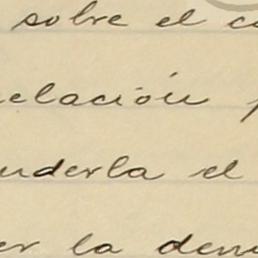 sobre el c
elación
nderla el
er la den